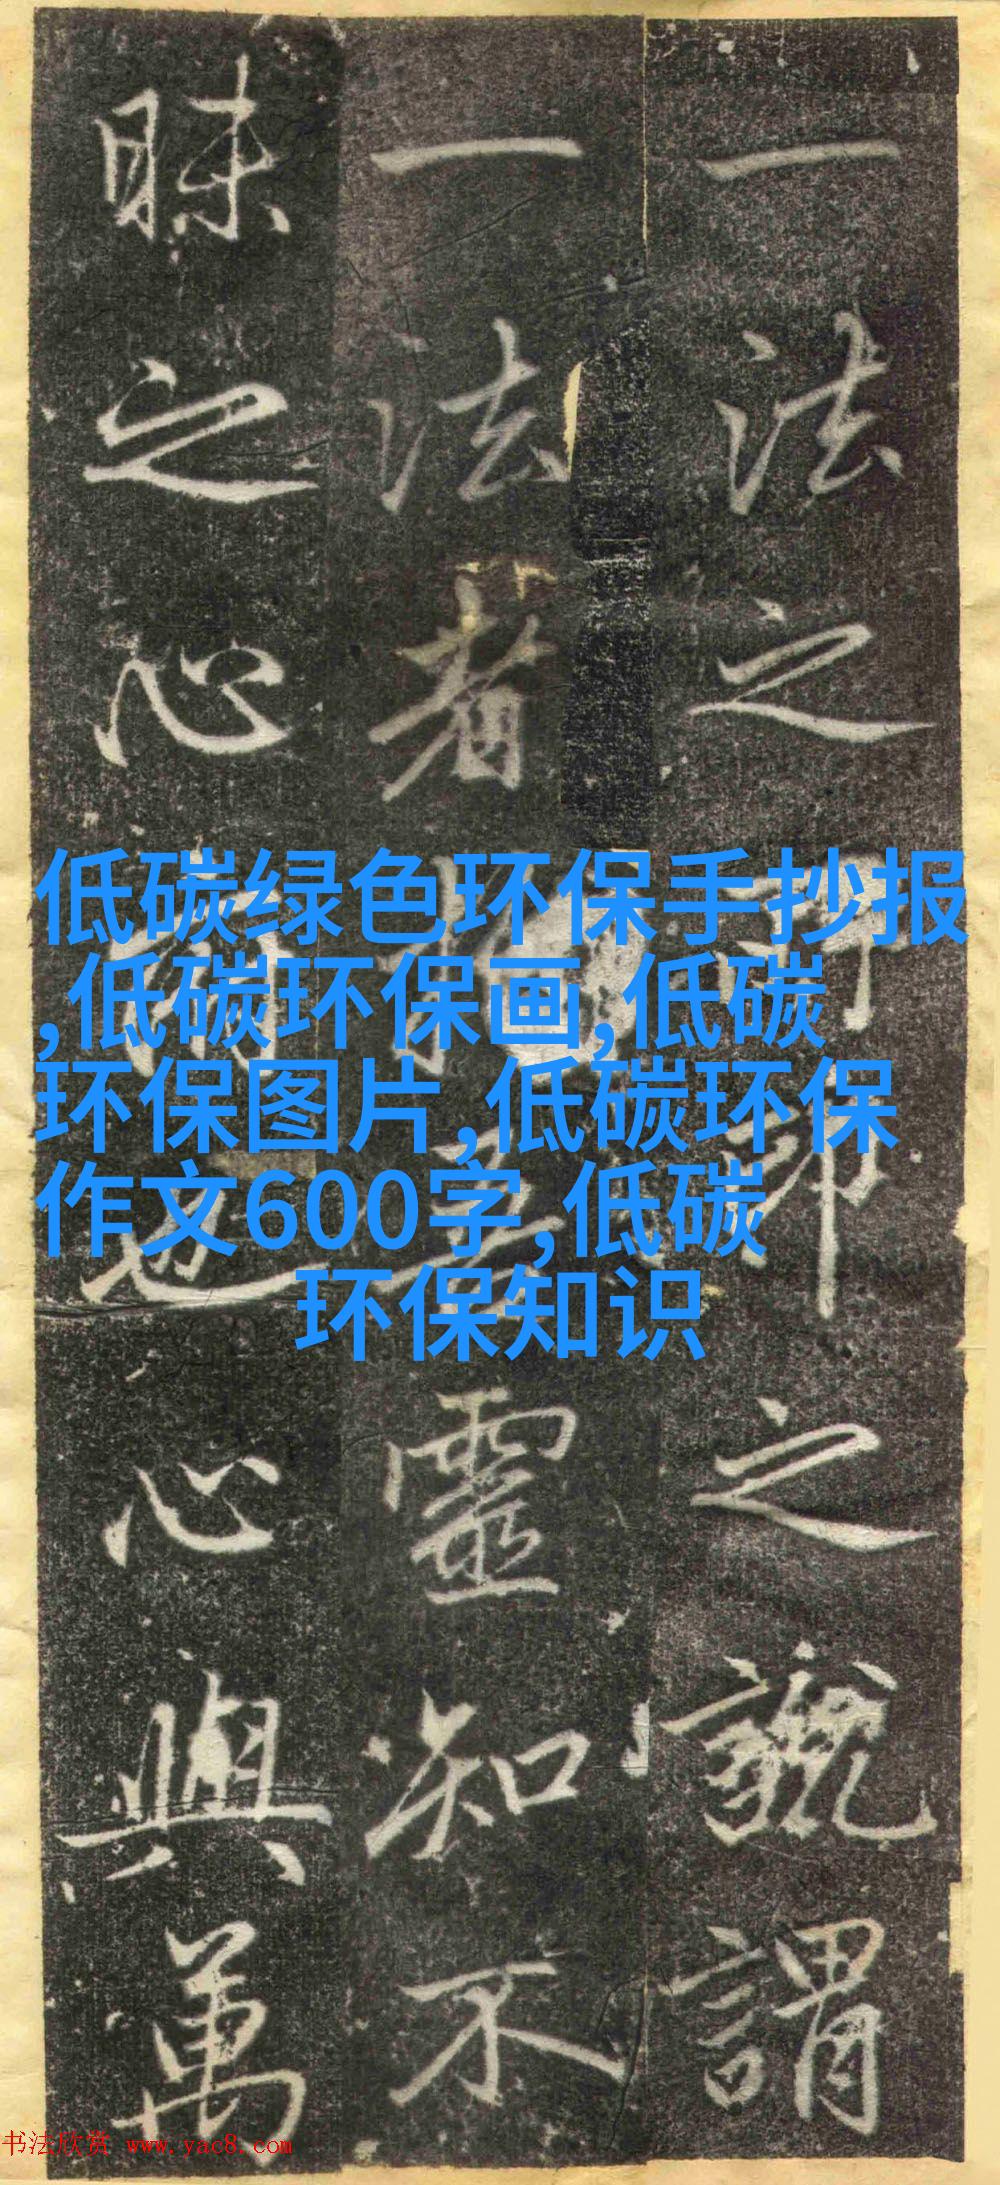 一法之印之號謂
一法者靈知不
昧之心也心與萬
低碳绿色环保手抄报
,低碳环保画,低碳
环保图片,低碳环保
作文600字,低碳
环保知识
书法欣赏 www.yac8.com